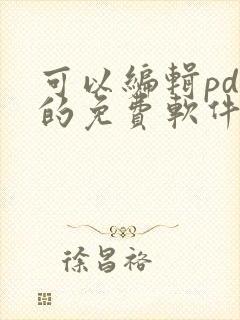 可以編輯pd
的免費軟件
徐昌裕